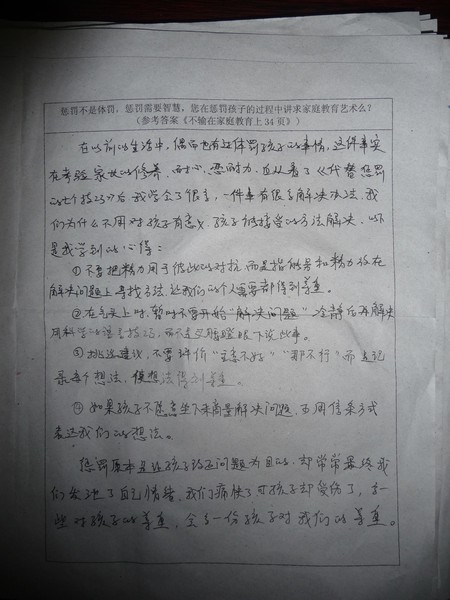 惩罚不是体罚，惩罚需要智慧，您在惩罚孩子的过程中讲求家庭教育艺术么？
（参考答案《不输在家庭教育上 34 页》）
在以前的生活中，偶而也有过体罚孩子的事情，这件事实
在考验家长的修养、耐心、忍耐力，自从看了《代替惩罚
的七个技巧》后我学会了很多，一件事有很多解决办法，我
们为什么不用对孩子有意义，孩子能接受的方法解决，以下
是我学到的心得：
①不要把精力用于彼此的对抗，而是指能量和精力放在
解决问题上寻找方法，让我们的个人需要都得到尊重。
②在气头上时，暂时不要开始“解决问题”冷静后再解决
用科学的语言技巧，而不是
③挑选建议，不要评价“主意不好”“那不行”而是记
录每个想法，使想法得到尊重。
④如果孩子不愿意坐下来商量解决问题，可用信条方式
表达我们的想法。
惩罚原本是让孩子改正问题为目的，却常常最终我
们发泄了自己情绪，我们痛快了可孩子却受伤了，多一
些对孩子的尊重，会多一份孩子对我们的尊重。